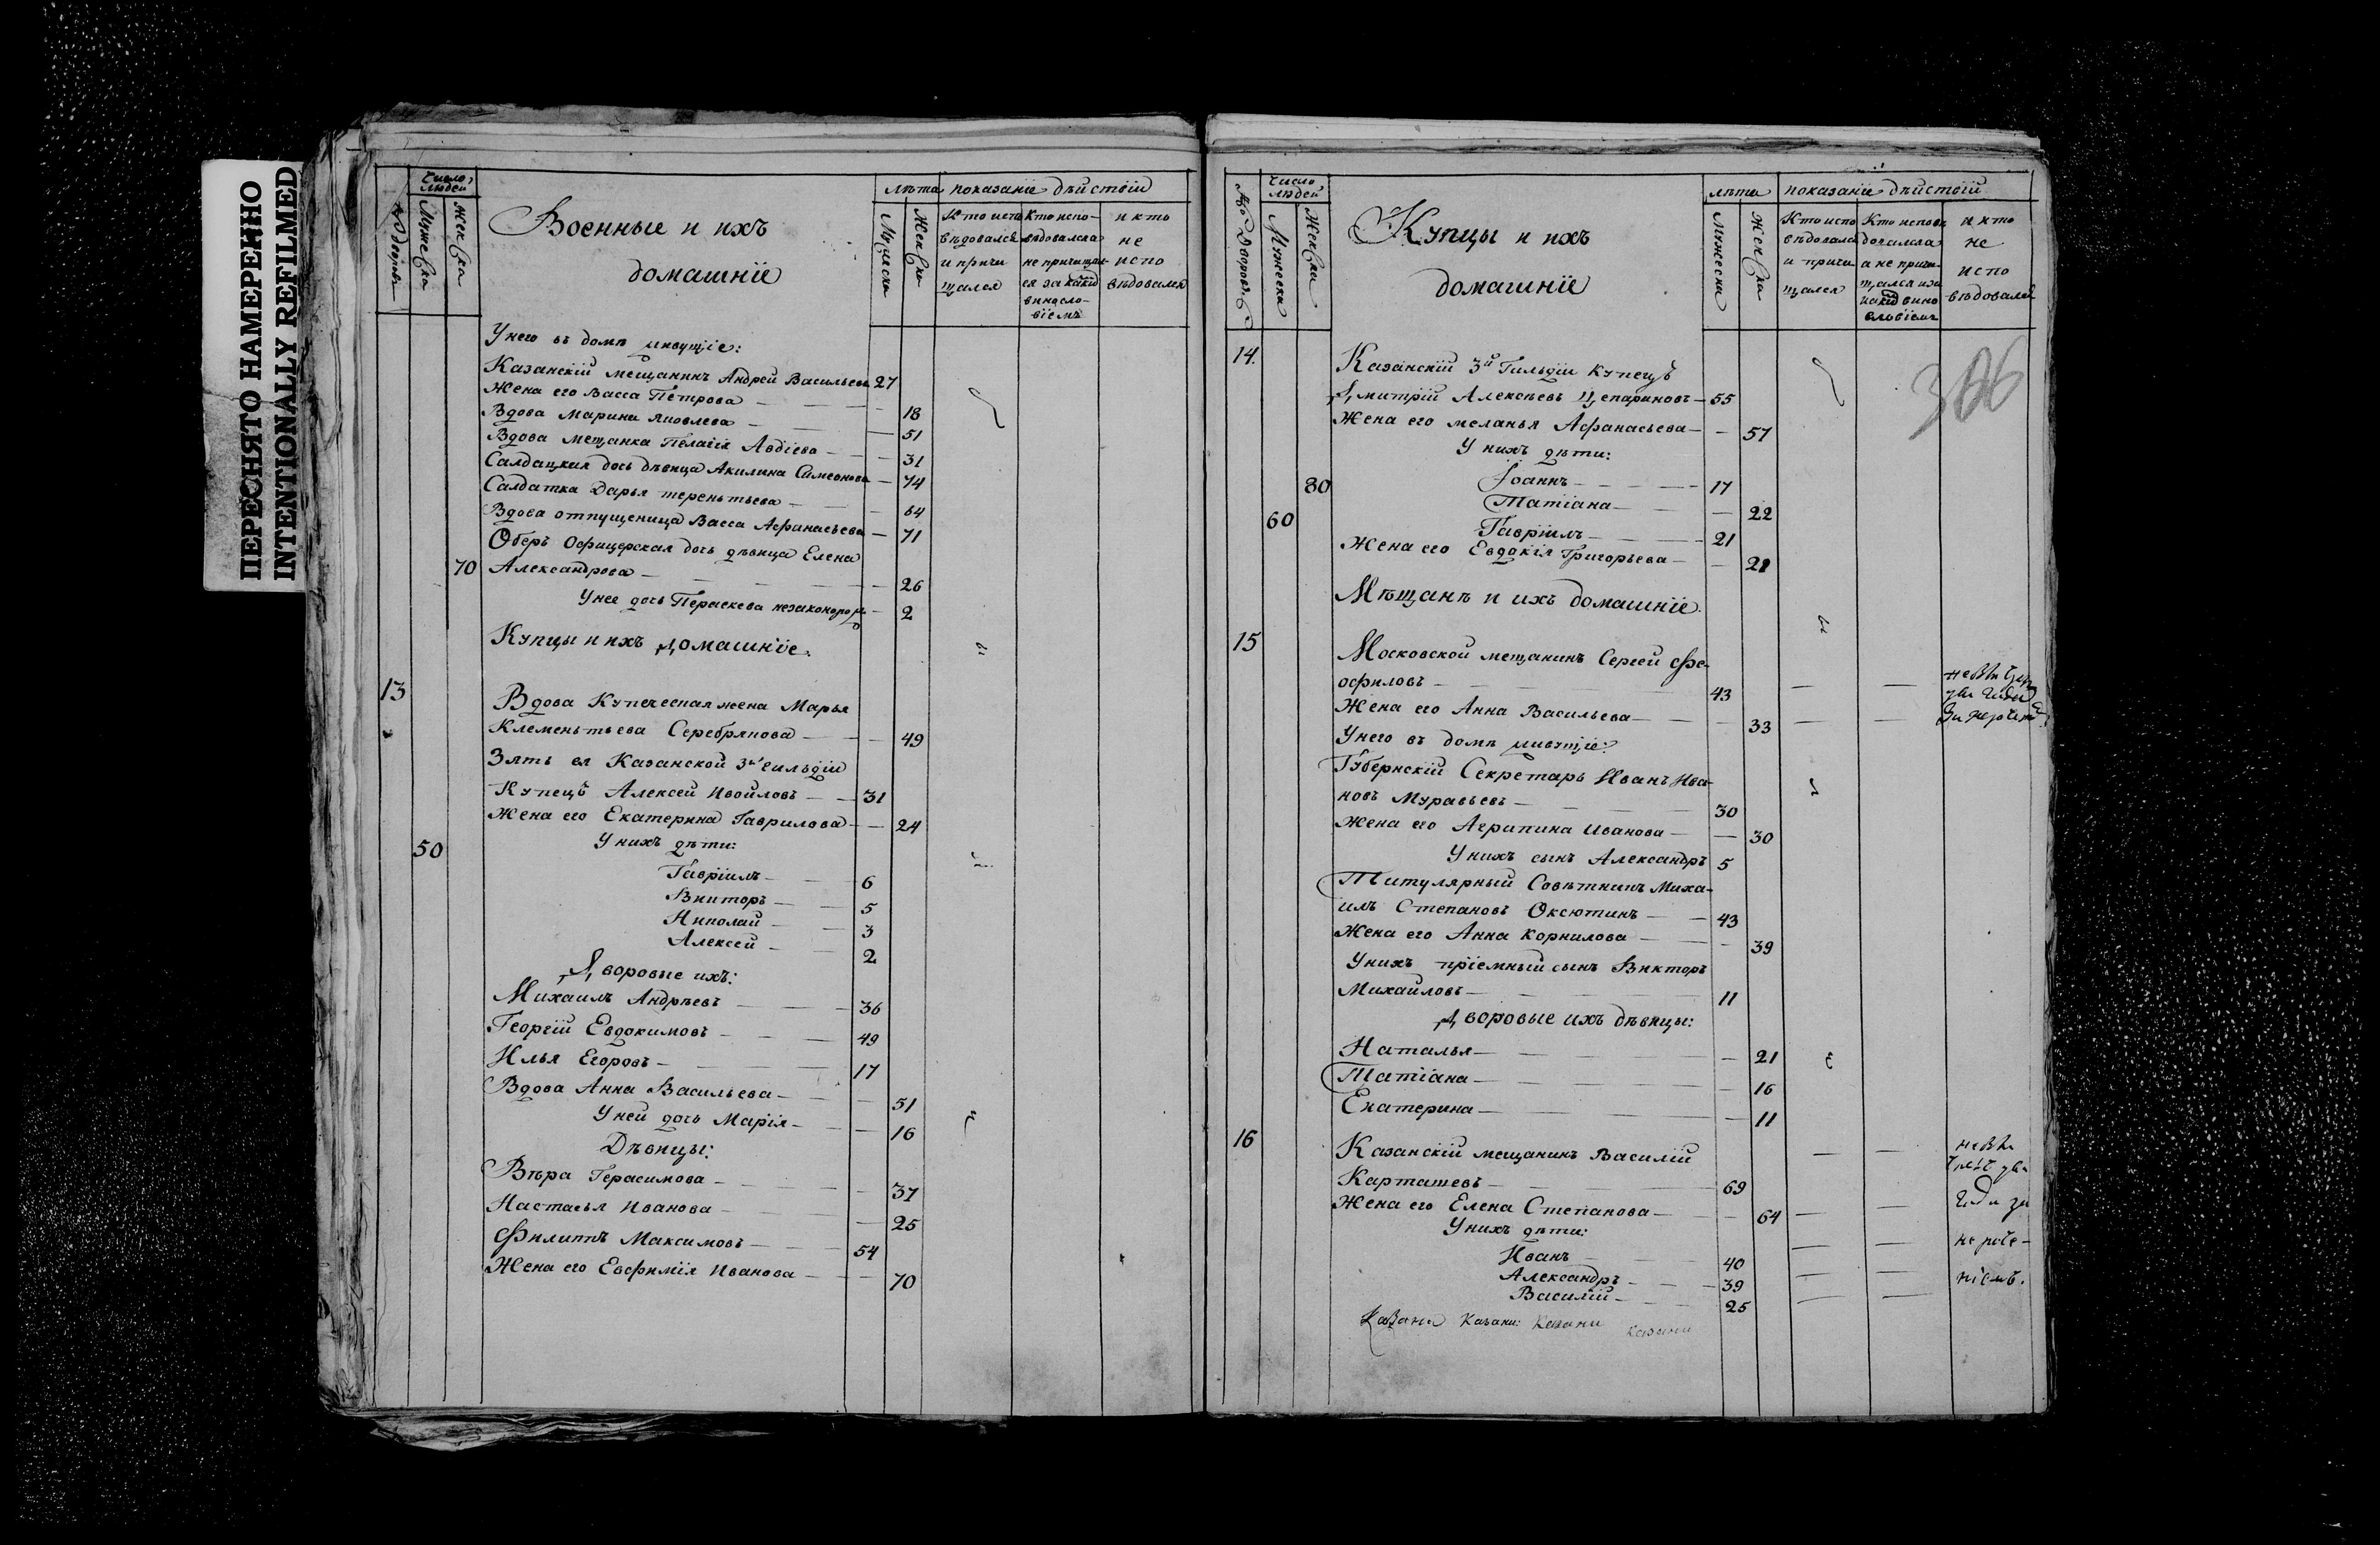 ПЕРЕСНЯТО НАМЕРЕННО
INTENTIONALLY REFILMED
Число людей
Мужеска
Женска
Военные и ихъ
домашніе
лѣта
показаніе дѣйствіи
Мужеска
Женска
Кто испо
вѣдовался
и прича
щался
Кто испо-
вѣдовался а
не причащал-
ся за какимъ
винсло-
віемъ
и кто
не
испо
вѣдовался
У него въ домѣ живущіе:
Казанскій мещанинъ Андрей Васильевъ 27
Жена его Васса Петрова — 18
Вдова Марина Яковлева — 51
Вдова мещанка Пелагія Авдіева — 31
Салдацкая дочь дѣвица Акилина Симеонова — 74
Салдатка Дарья терентьева — 64
Вдова отпущеница Васса Афанасьева — 71
Оберъ Офицерская дочь дѣвица Елена
70 Александрова — 26
У нее дочь Параскева незаконорож — 2
Купцы и ихъ домашніе.
13 Вдова Купеческая жена Марья
Клементьева Серебрякова — 49
Зять ея Казанской 3й гильдіи
Купецъ Алексей Ивойловъ — 31
Жена его Екатерина Гаврилова — 24
50 У нихъ дѣти:
Гавріилъ — 6
Викторъ — 5
Николай — 3
Алексей — 2
Дворовые ихъ:
Михаилъ Андрѣевъ — 36
Георгій Евдокимовъ — 49
Илья Егоровъ — 17
Вдова Анна Васильева — 51
У ней дочь Марія — 16
Дѣвицы:
Вѣра Герасимова — 37
Настасья Иванова — 25
Филиппъ Максимовъ — 54
Жена его Евфимія Иванова — 70
Число людей
Мужеска
Женска
Купцы и ихъ
домашніе
лѣта
показаніе дѣйствій
Мужеска
Женска
Кто испо
вѣдовался
и прича
щался
Кто исповѣ
довался
а не прича-
щался и за
какимъ вино
словіемъ
и кто
не
испо
вѣдовался
306
14. Казанскій 3й Гильдіи Купецъ
Дмитрій Алексѣевъ Щепариновъ — 55
Жена его меланья Афанасьева — 57
У нихъ дѣти:
80 Іоаннъ — 17
Татіана — 22
60 Гавріилъ — 21
Жена его Евдокія Григорьева — 21
Мѣщанѣ и ихъ домашніе.
15 Московской мещанинъ Сергей Фе-
офиловъ — 43
Жена его Анна Васильева — 33
У него въ домѣ живущіе:
Губернскій Секретарь Иванъ Ива-
новъ Муравьевъ — 30
Жена его Агрипина Иванова — 30
У нихъ сынъ Александръ 5
Титулярный Совѣтникъ Миха-
илъ Степановъ Оксютинъ — 43
Жена его Анна Корнилова — 39
У нихъ пріемный сынъ Викторъ
Михайловъ — 11
Дворовые ихъ дѣвицы:
Наталья — 21
Татіана — 16
Екатерина — 11
16 Казанскій мещанинъ Василій
Карташевъ — 69
Жена его Елена Степанова — 64
У нихъ дѣти:
Иванъ — 40
Александръ — 39
Василій — 25
года за
нероче-
ніемъ.
Казани Казани: Казани Казани